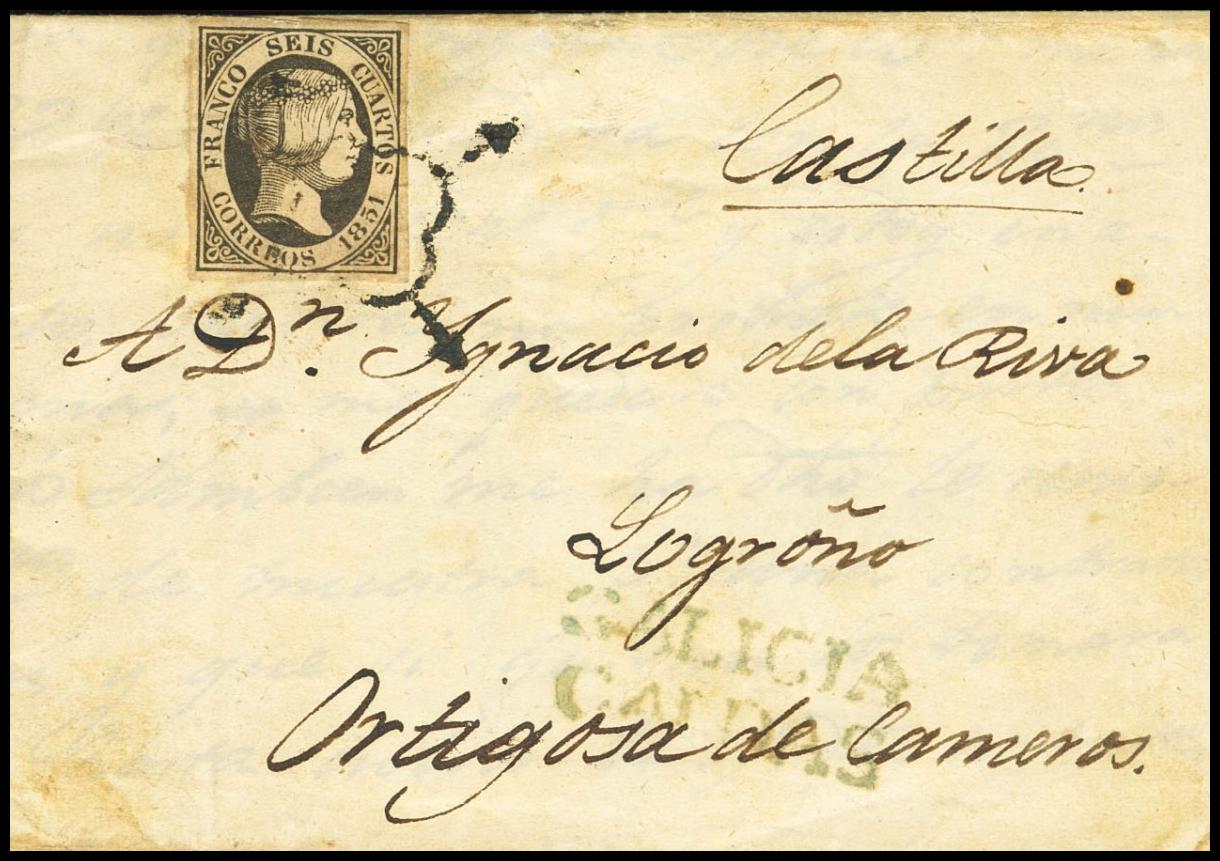 FRANCO SEIS CUARTOS
CORREOS 1851
Castilla
A Dn. Ygnacio dela Riva
Logroño
GALICIA
CALDAS
Ortigosa de Cameros.